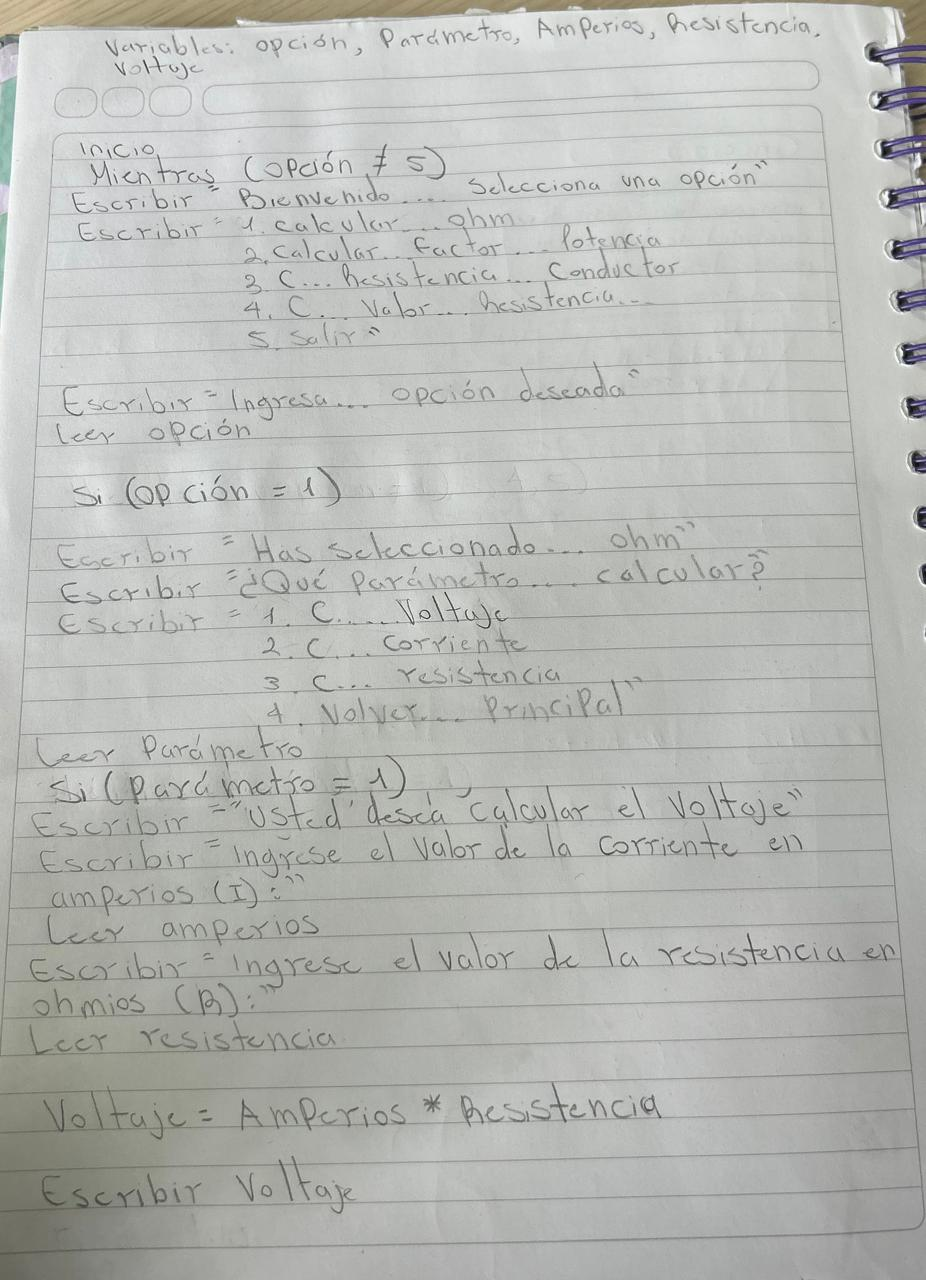 Variables: opción, Parámetro, Amperios, Resistencia,
Voltaje
Inicio
Mientras (opción ≠ 5)
Escribir "Bienvenido.... Selecciona una opción"
Escribir "1. calcular... ohm
2. Calcular... factor... Potencia
3. C... Resistencia... Conductor
4. C... Valor... Resistencia...
5. Salir"
Escribir "Ingresa... opción deseada"
Leer opción
Si (opción = 1)
Escribir "Has seleccionado... ohm"
Escribir "¿Qué Parámetro.... calcular?"
Escribir "1. C..... Voltaje
2. C... Corriente
3. C... resistencia
4. Volver... Principal"
Leer Parámetro
Si (Parámetro = 1)
Escribir "Usted desea calcular el Voltaje"
Escribir "Ingrese el valor de la corriente en
amperios (I):"
Leer amperios
Escribir "Ingrese el valor de la resistencia en
ohmios (R):"
Leer resistencia
Voltaje = Amperios * Resistencia
Escribir Voltaje